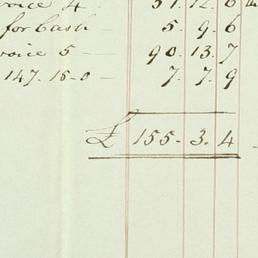 voice 4 - 51. 12. 6
for Cash - 5. 9. 6
voice 5 - 90. 13. 7
147. 15-0 - 7. 7. 9
£ 155. 3. 4